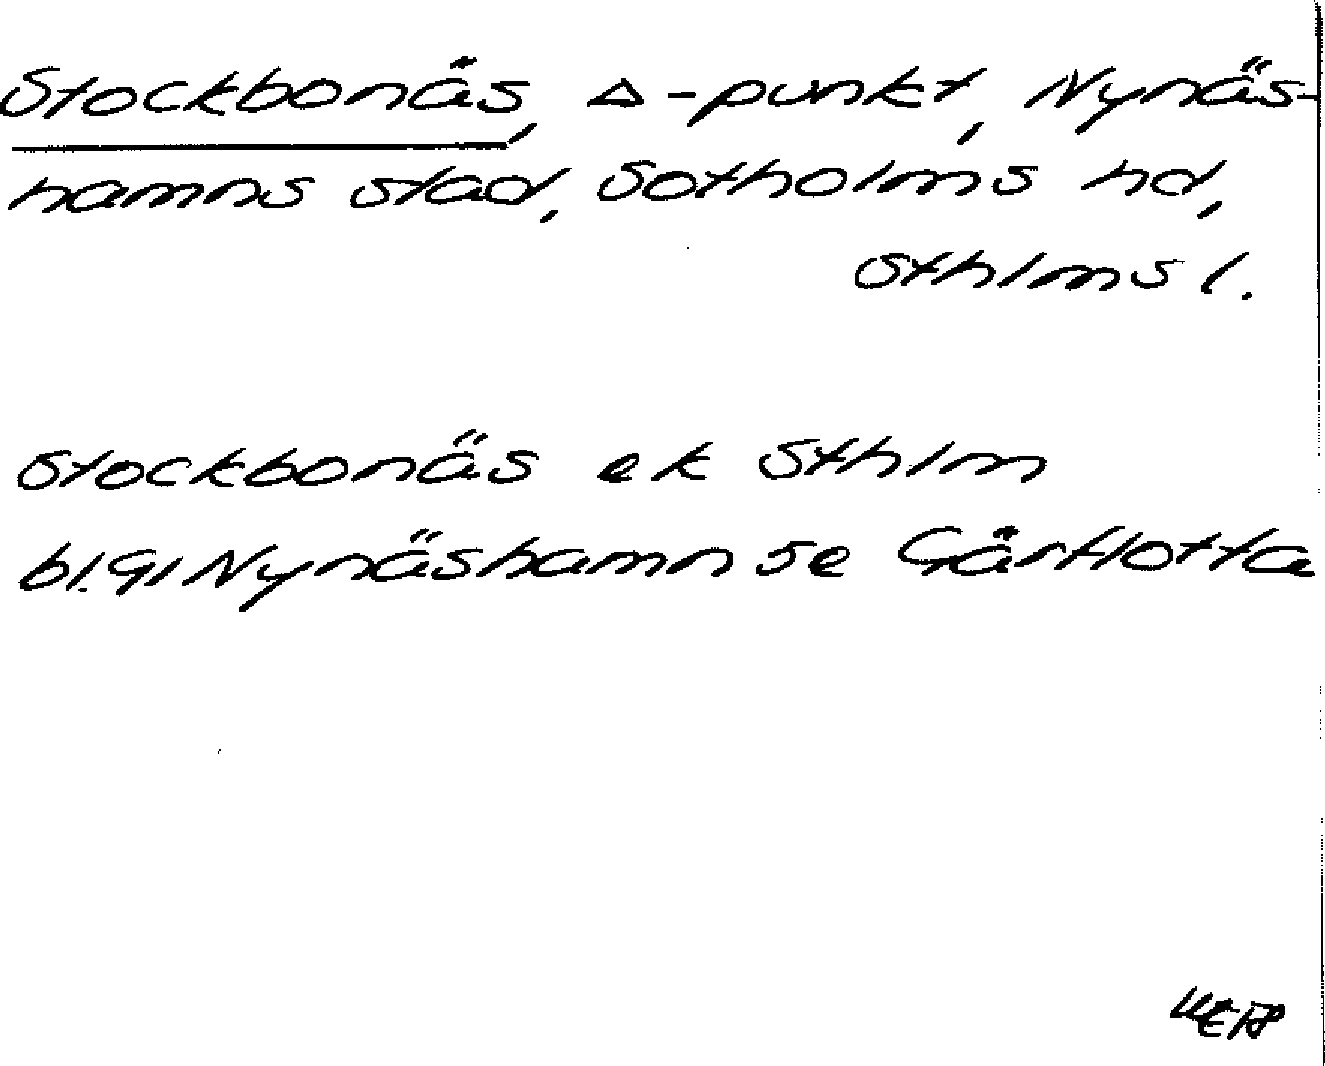 Stockbonäs, Δ-punkt, Nynäs-
hamns stad, Sotholms hd,
Sthlms l.
Stockbonäs ek Sthlm
bl. 91 Nynäshamn se Gårflotta